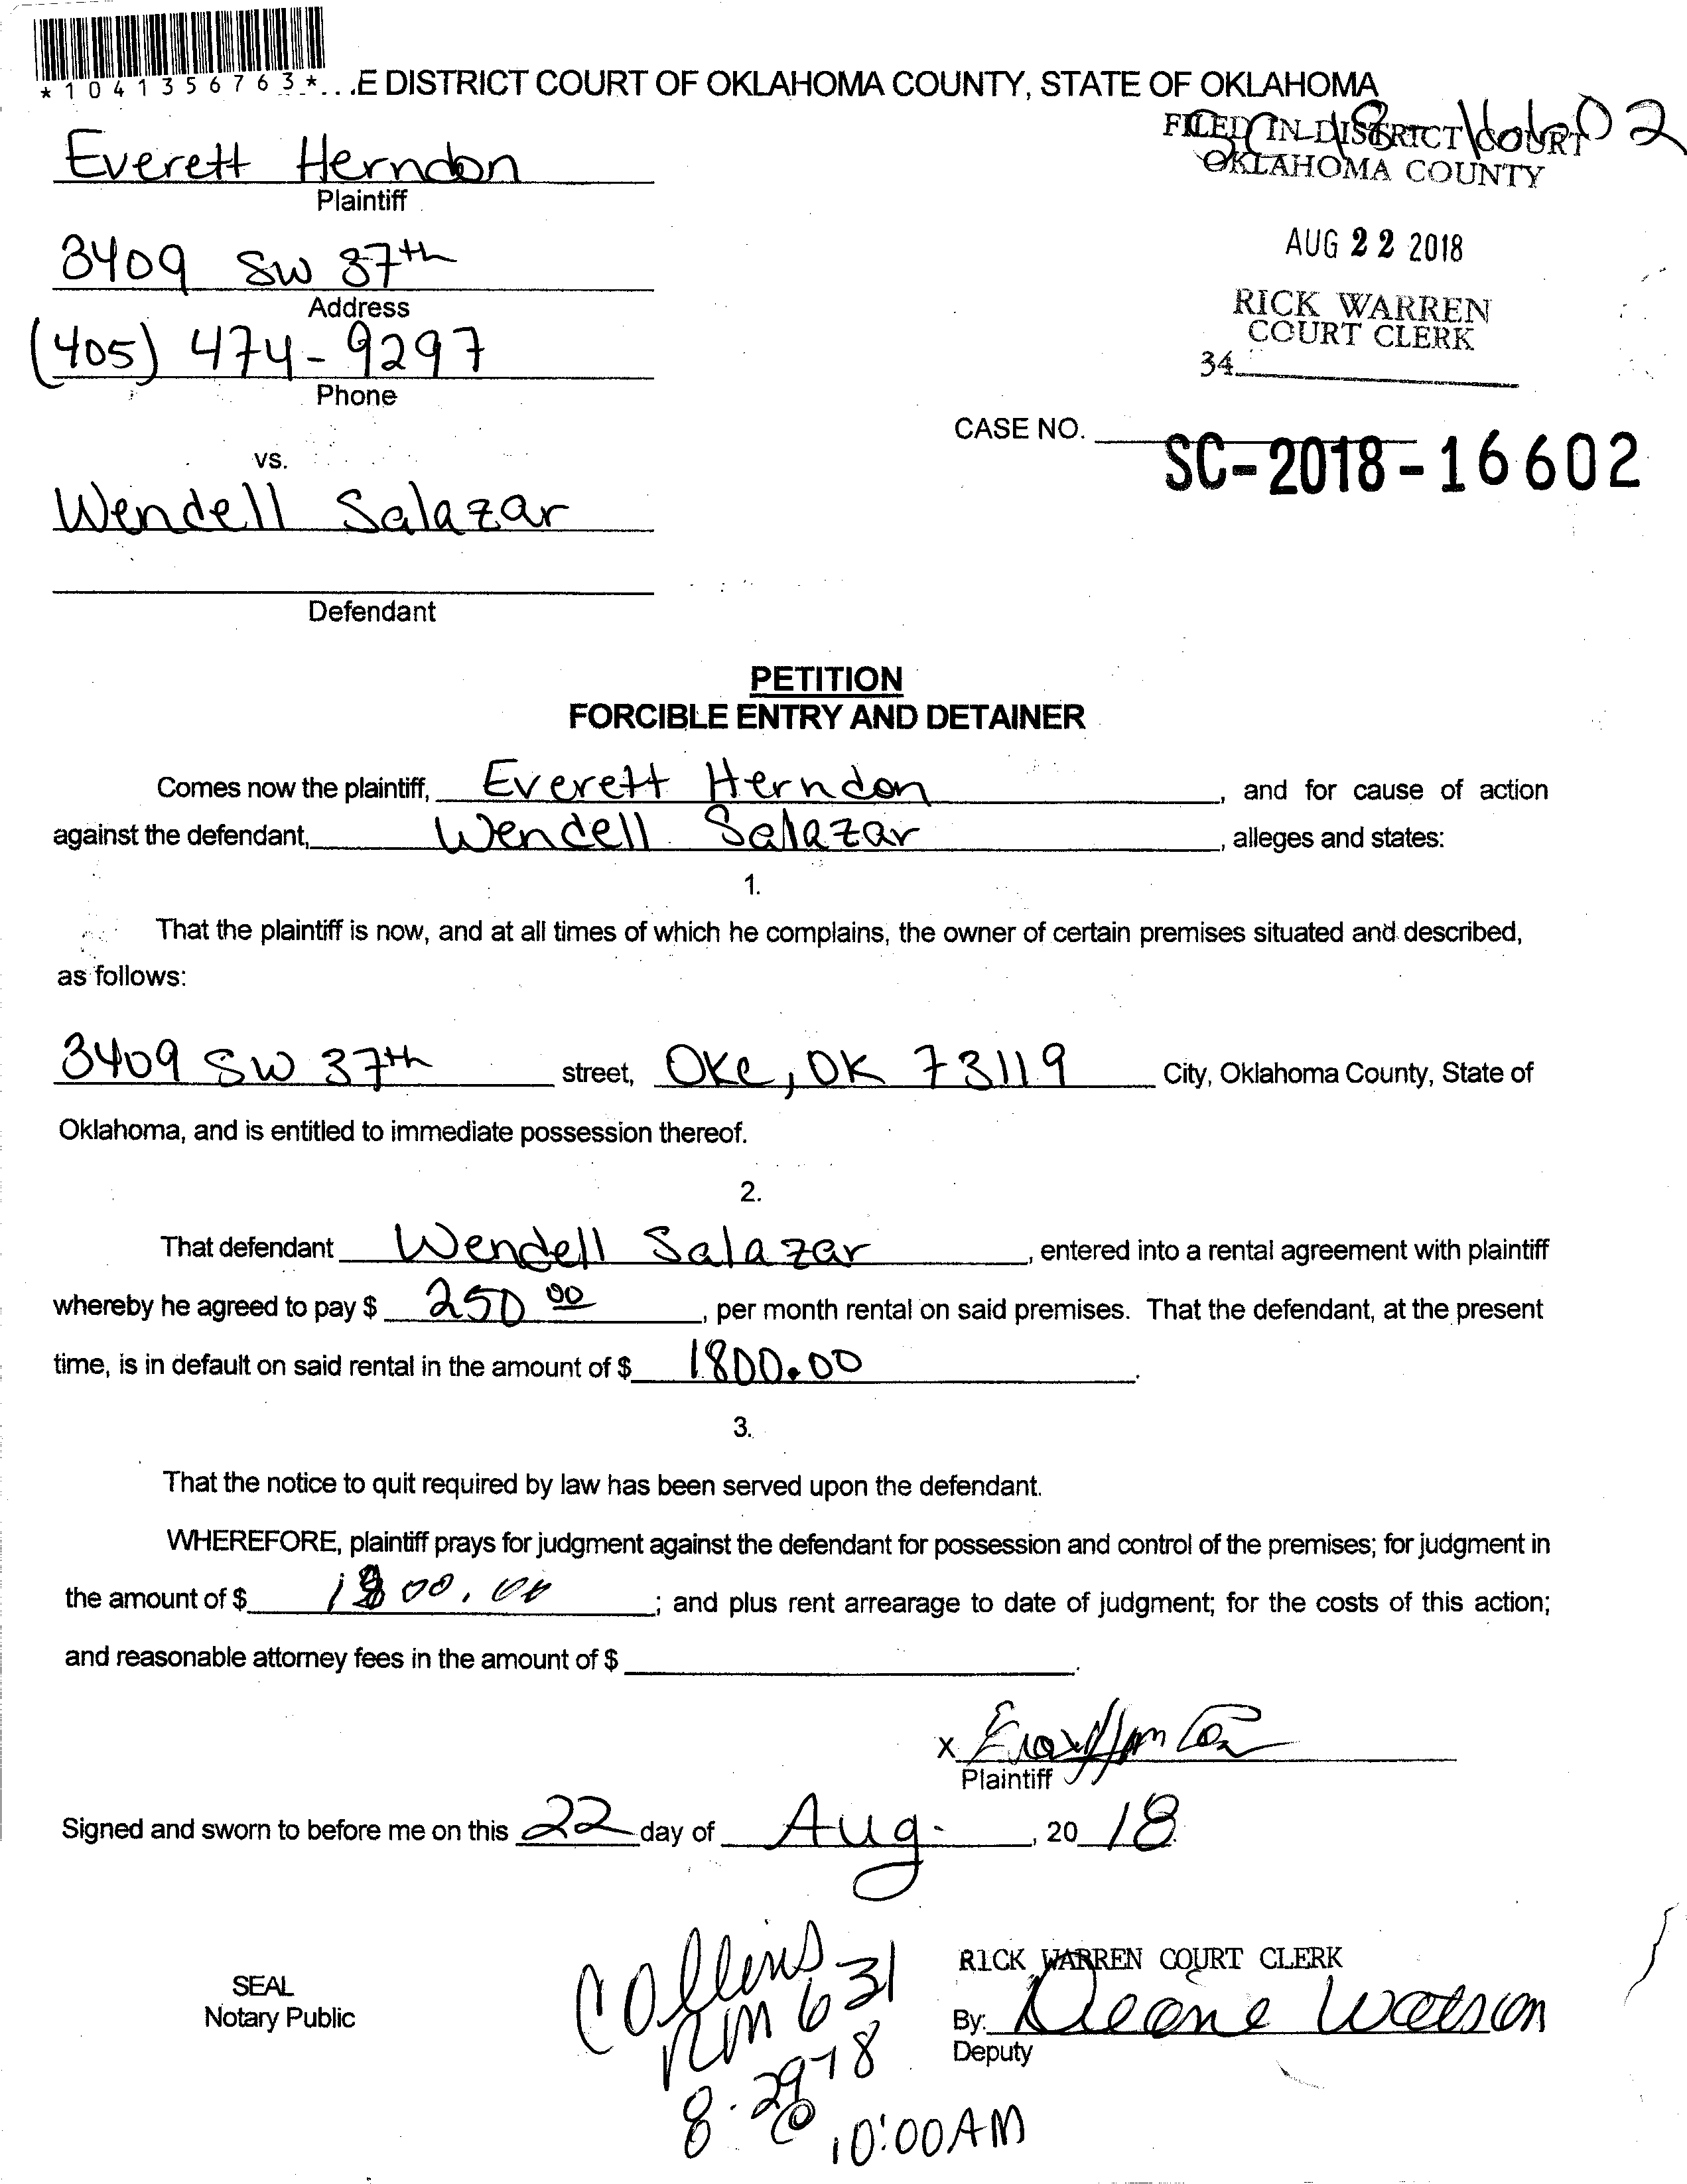 *1041356763*
...E DISTRICT COURT OF OKLAHOMA COUNTY, STATE OF OKLAHOMA
FILED IN DISTRICT COURT
OKLAHOMA COUNTY
Everett Herndon
Plaintiff
AUG 22 2018
3409 SW 37th
Address
RICK WARREN
COURT CLERK
34
(405) 474-9297
Phone
CASE NO. SC-2018-16602
vs.
Wendell Salazar
Defendant
PETITION
FORCIBLE ENTRY AND DETAINER
Comes now the plaintiff, Everett Herndon, and for cause of action
against the defendant, Wendell Salazar, alleges and states:
1.
That the plaintiff is now, and at all times of which he complains, the owner of certain premises situated and described,
as follows:
3409 SW 37th street, OKC, OK 73119 City, Oklahoma County, State of
Oklahoma, and is entitled to immediate possession thereof.
2.
That defendant Wendell Salazar, entered into a rental agreement with plaintiff
whereby he agreed to pay $ 250 00, per month rental on said premises. That the defendant, at the present
time, is in default on said rental in the amount of $ 1800.00.
3.
That the notice to quit required by law has been served upon the defendant.
WHEREFORE, plaintiff prays for judgment against the defendant for possession and control of the premises; for judgment in
the amount of $ 1800.00; and plus rent arrearage to date of judgment; for the costs of this action;
and reasonable attorney fees in the amount of $ .
X
Plaintiff
Signed and sworn to before me on this 22 day of Aug., 20 18.
Collins
RM 631
8-29-18
@ 10:00AM
SEAL
Notary Public
RICK WARREN COURT CLERK
By: Deane Watson
Deputy